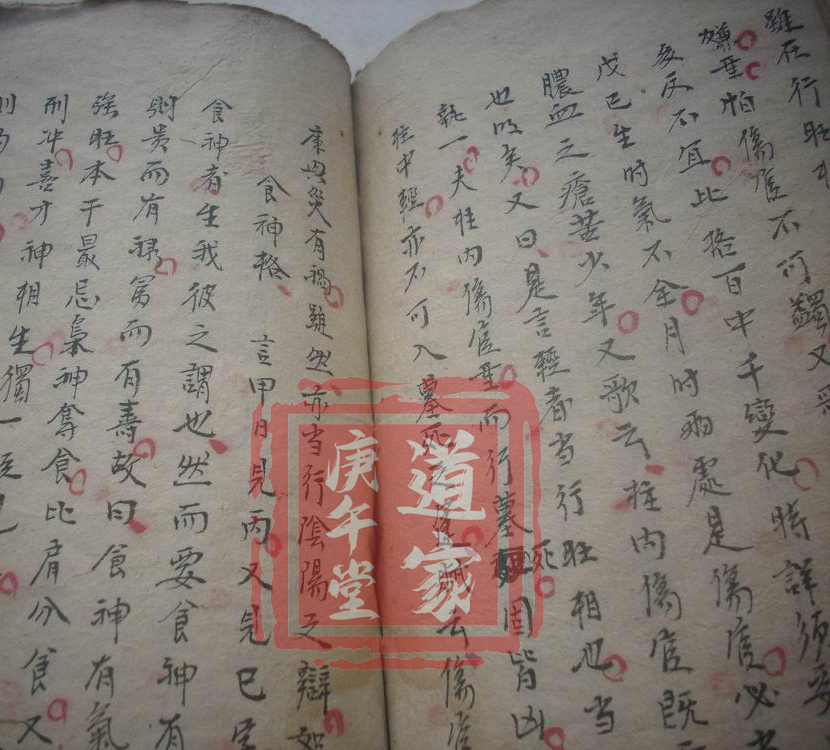 雖在行旺
重怕傷官不可蠲又
亥反不宜比格百中千變化時詳須
戊己生時氣不全月時兩處是傷官必
膿血之瘡苦少年又歌云柱内傷官既
也明矣又曰是言輕者当行旺相也当
執一夫柱内傷官重而行墓死固皆凶
柱中輕亦不可入墓死之賦云傷官
庫興災有禍雖然亦当行陰陽之辯如
食神格 言甲日見丙又見巳
食神者生我彼之謂也然而要食神有
則貴而有祿富而有壽故曰食神有氣
強旺本干最忌梟神奪食比肩分食又
刑冲喜才神相生獨一位見
則
道家
庚午堂